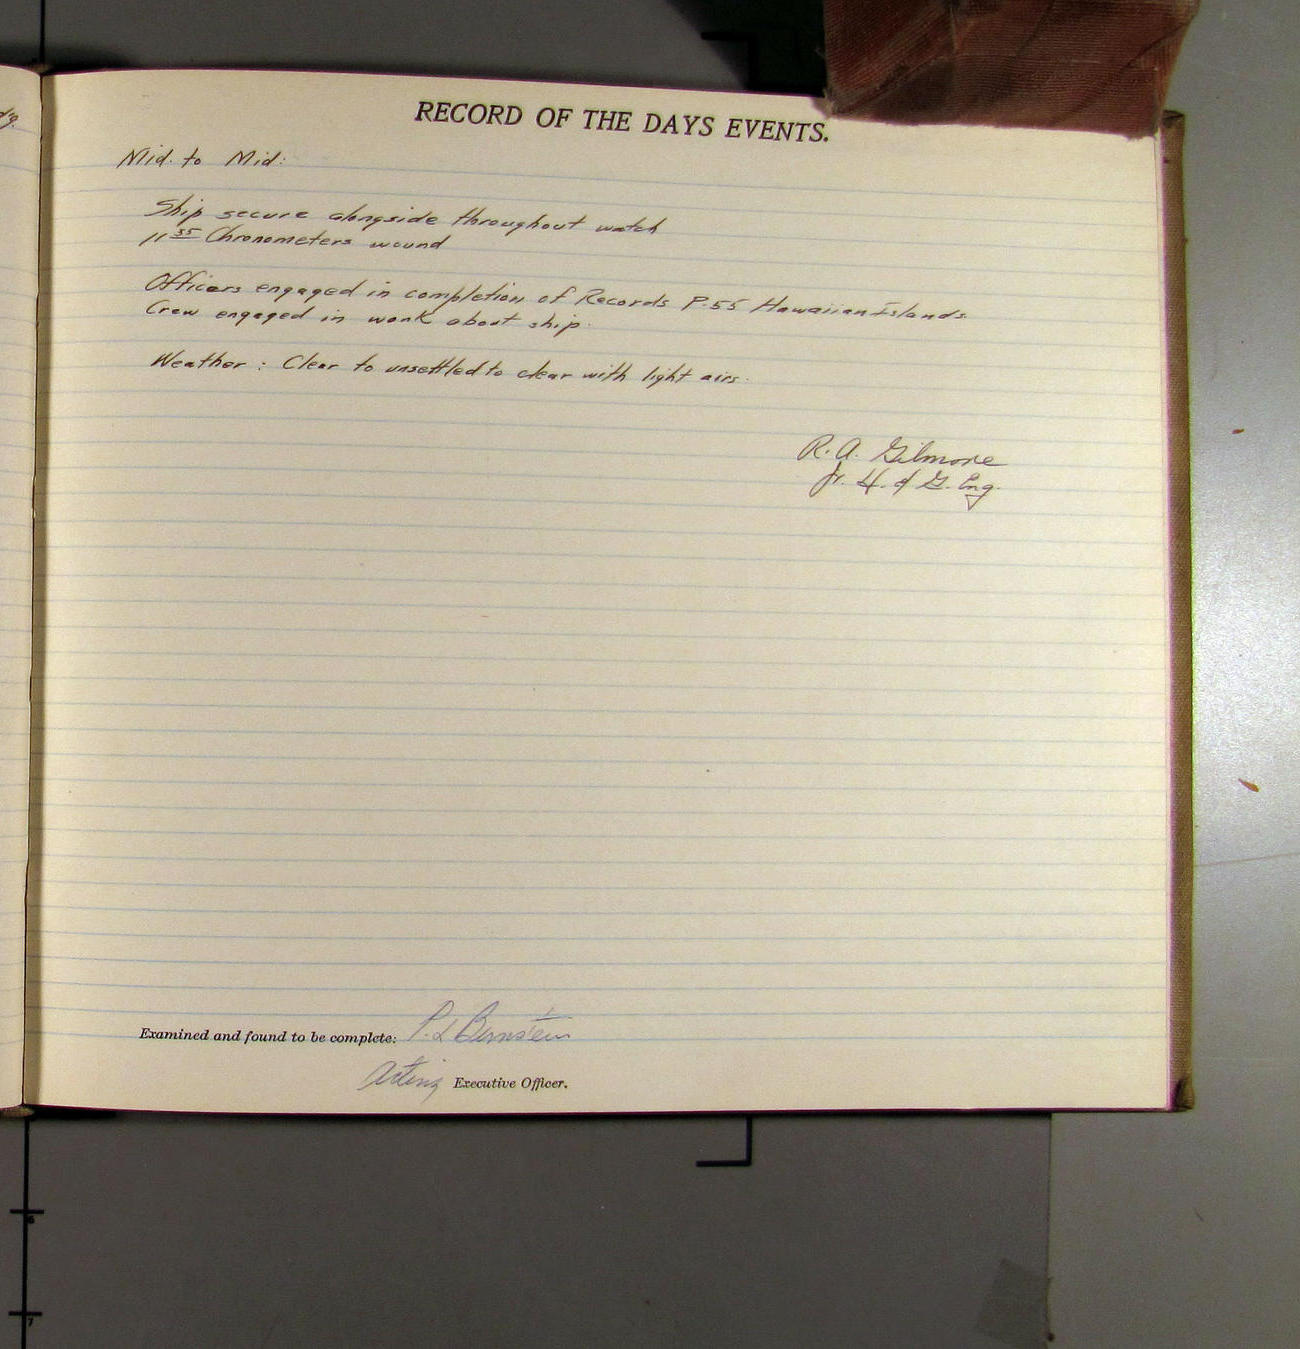 RECORD OF THE DAYS EVENTS.
Mid. to Mid:
Ship secure alongside throughout watch
11 55 Chronometers wound
Officers engaged in completion of Records P-55 Hawaiian Islands
Crew engaged in work about ship.
Weather : Clear to unsettled to clear with light airs.
R. A. Gilmore
Jr. H. & G. Eng.
Examined and found to be complete: P. L Bernstein
Acting Executive Officer.
6
7